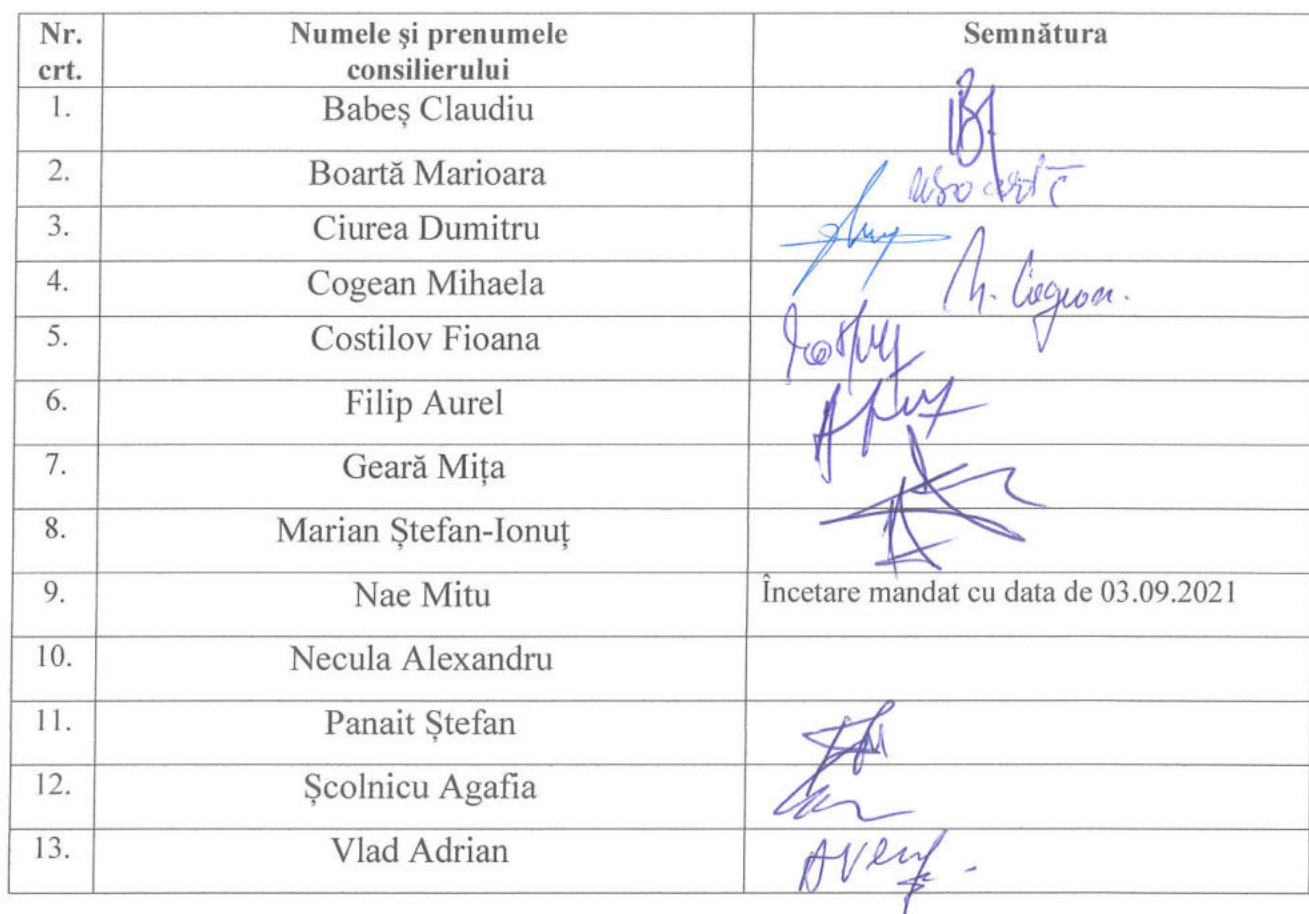 Nr. crt. Numele și prenumele consilierului Semnătura
1. Babeș Claudiu
2. Boartă Marioara
3. Ciurea Dumitru
4. Cogean Mihaela
5. Costilov Fioana
6. Filip Aurel
7. Geară Mița
8. Marian Ștefan-Ionuț
9. Nae Mitu Încetare mandat cu data de 03.09.2021
10. Necula Alexandru
11. Panait Ștefan
12. Școlnicu Agafia
13. Vlad Adrian